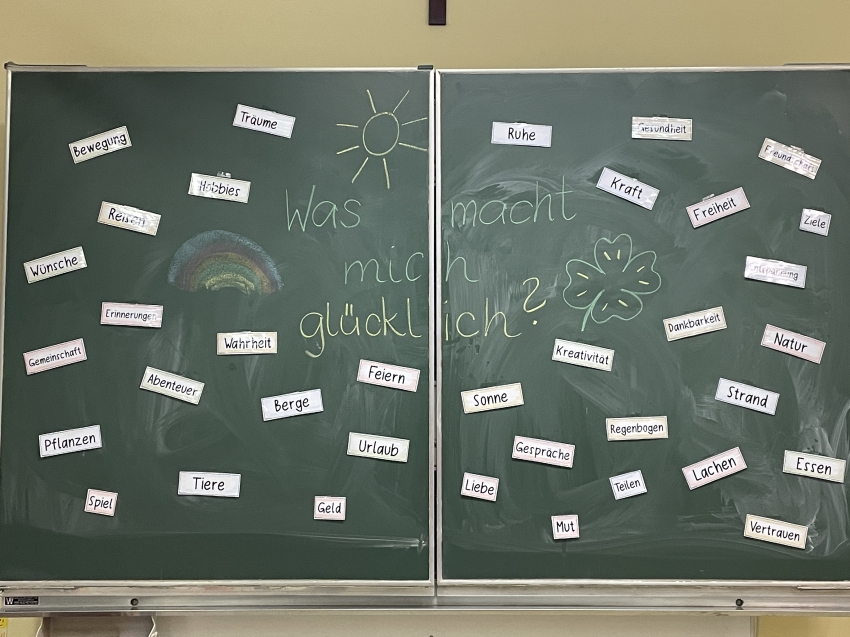 Was macht
mich
glücklich?
Bewegung
Träume
Hobbies
Reisen
Wünsche
Erinnerungen
Wahrheit
Gemeinschaft
Abenteuer
Feiern
Berge
Pflanzen
Urlaub
Tiere
Spiel
Geld
Ruhe
Gesundheit
Freundschaft
Kraft
Freiheit
Ziele
Dankbarkeit
Natur
Kreativität
Sonne
Strand
Regenbogen
Gespräche
Lachen
Essen
Liebe
Teilen
Mut
Vertrauen